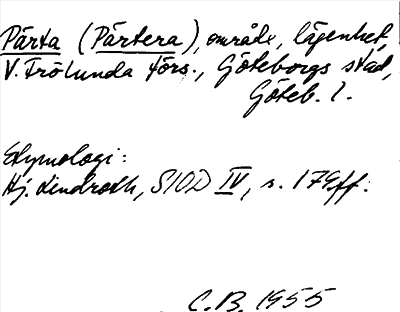 Pärta (Pärtera), område, lägenhet,
V. Frölunda förs., Göteborgs stad,
Göteb. l.
Etymologi:
Hj. Lindroth, SIOD IV, s. 179ff.
C.B. 1955